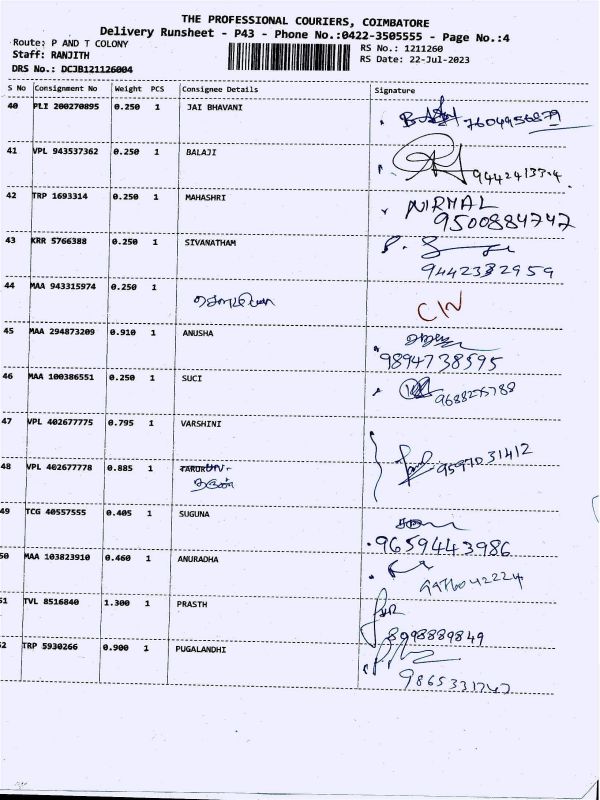 THE PROFESSIONAL COURIERS, COIMBATORE
Delivery Runsheet - P43 - Phone No.:0422-3505555 - Page No.:4
Route: P AND T COLONY
Staff: RANJITH
DRS No.: DCJB121126004
RS No.: 1211260
RS Date: 22-Jul-2023
S No Consignment No Weight PCS Consignee Details Signature
40 PLI 200270895 0.250 1 JAI BHAVANI 7604956879
41 VPL 943537362 0.250 1 BALAJI
42 TRP 1693314 0.250 1 MAHASHRI NIRMAL
9500884747
43 KRR 5766388 0.250 1 SIVANATHAM
9442382959
44 MAA 943315974 0.250 1
45 MAA 294873209 0.910 1 ANUSHA
9894738595
46 MAA 100386551 0.250 1 SUCI
47 VPL 402677775 0.795 1 VARSHINI
9597031412
48 VPL 402677778 0.885 1
49 TCG 40557555 0.405 1 SUGUNA
9659443986
50 MAA 103823910 0.460 1 ANURADHA
51 TVL 8516840 1.300 1 PRASTH
8098889849
52 TRP 5930266 0.900 1 PUGALANDHI